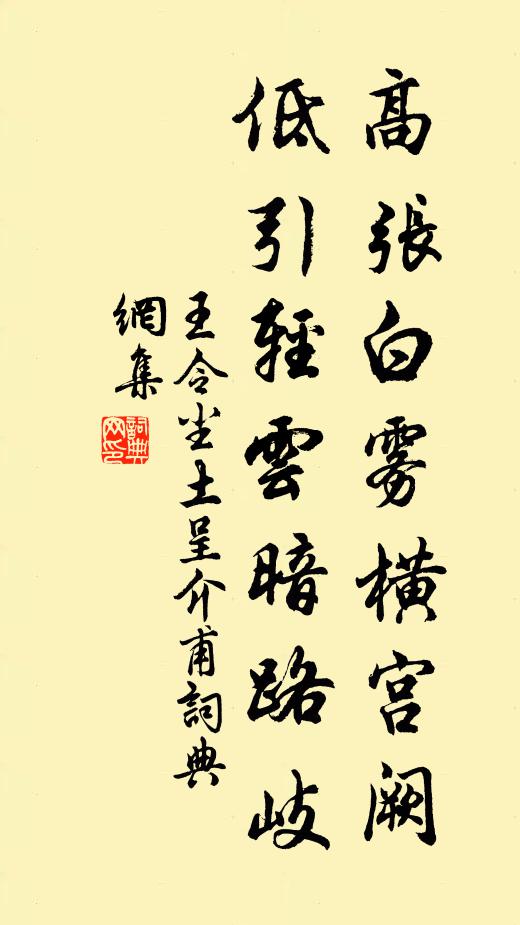 高張白雾橫宫闕
低引輕雲暗路岐
王令尘土呈介甫詞典
網集
詞典
网印